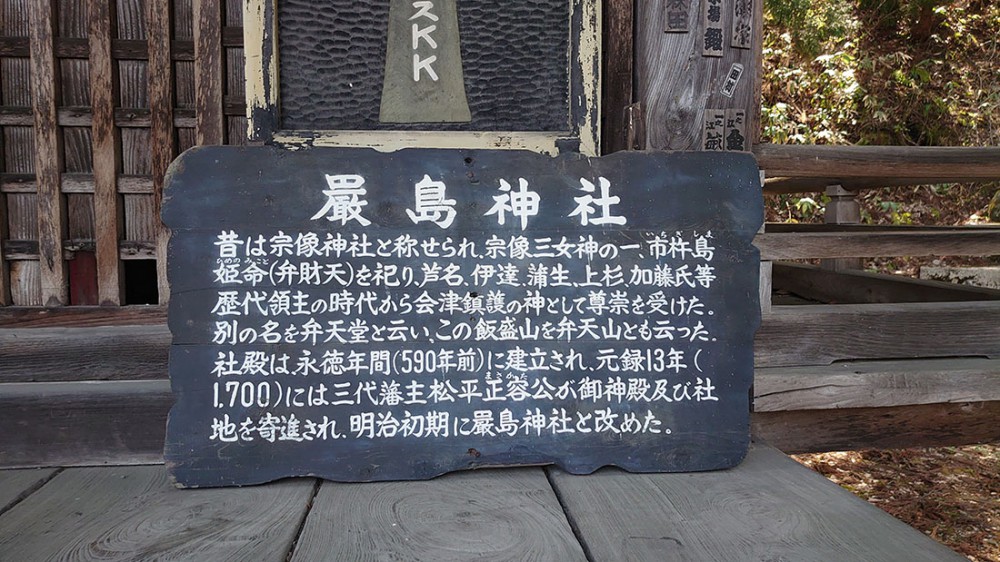 スKK
嚴島神社
昔は宗像神社と称せられ、宗像三女神の一、市杵島
姫命(弁財天)を祀り、芦名、伊達、蒲生、上杉、加藤氏等
歴代領主の時代から会津鎮護の神として尊崇を受けた。
別の名を弁天堂と云い、この飯盛山を弁天山とも云った.
社殿は、永徳年間(590年前)に建立され、元録13年(
1,700)には三代藩主松平正容公が御神殿及び社
地を寄進され、明治初期に嚴島神社と改めた。